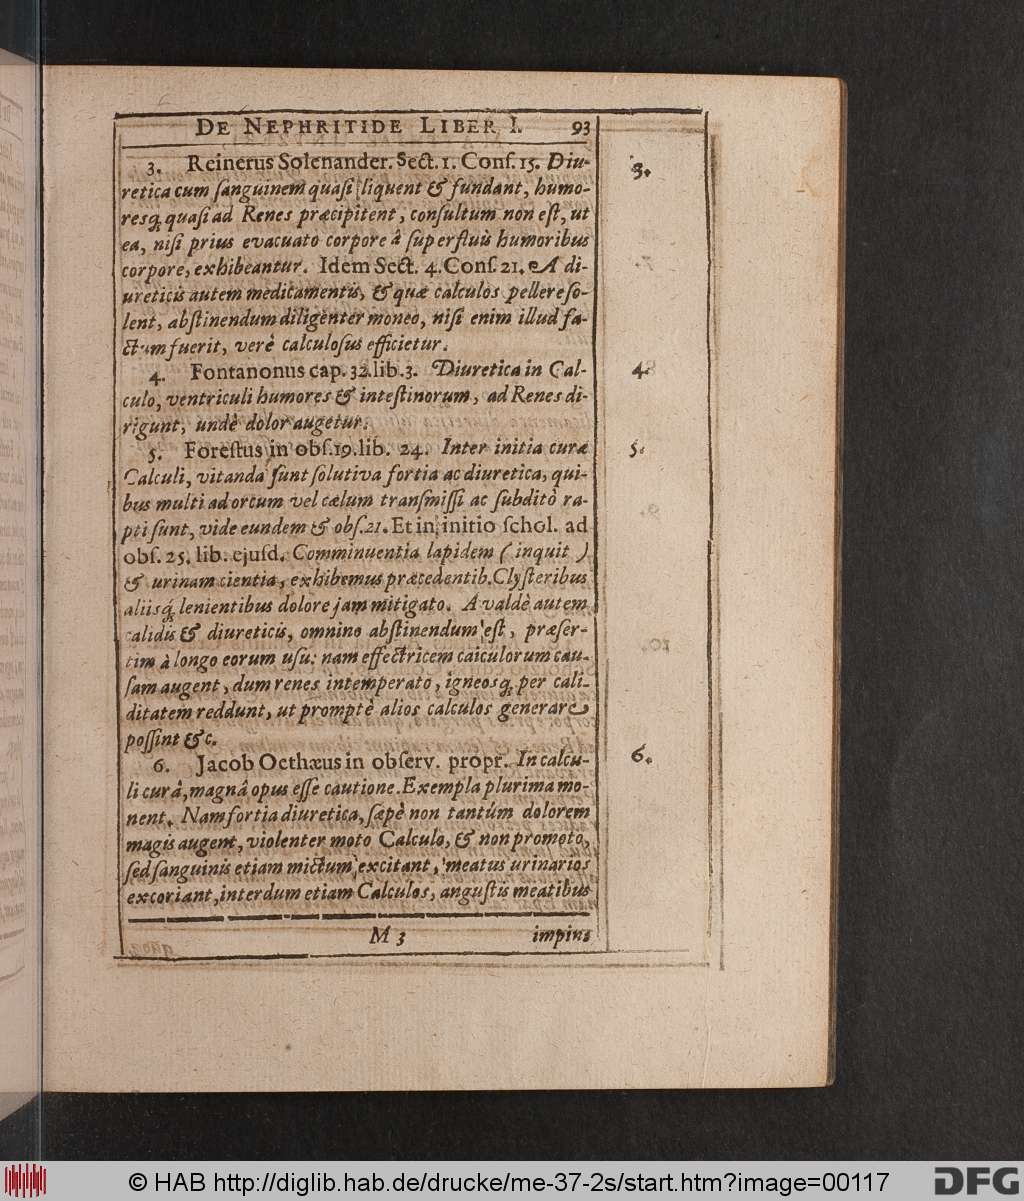 DE NEPHRITIDE LIBER I. 93
3. Reinerus Solenander. Sect. 1. Conſ. 15. Diu- 3.
retica cum ſanguinem quaſi liquent & fundant, humo-
resq́ quaſi ad Renes præcipitent, conſultum non eſt, ut
ea, niſi prius evacuato corpore â ſuperfluis humoribus
corpore, exhibeantur. Idem Sect. 4. Conſ. 21. A di-
ureticis autem medicamentis, & quæ calculos pellere ſo-
lent, abſtinendum diligenter moneo, niſi enim illud fa-
ctum fuerit, verè calculoſus efficietur.
4. Fontanonus cap. 32. lib. 3. Diuretica in Cal- 4.
culo, ventriculi humores & inteſtinorum, ad Renes di-
rigunt, undè dolor augetur.
5. Foreſtus in obſ. 19. lib. 24. Inter initia curæ 5.
Calculi, vitanda ſunt ſolutiva fortia ac diuretica, qui-
bus multi ad orcum vel cælum transmiſſi ac ſubditò ra-
pti ſunt, vide eundem & obſ. 21. Et in initio ſchol. ad
obſ. 25. lib. ejuſd. Comminuentia lapidem (inquit)
& urinam cientia, exhibemus præcedentib. Clyſteribus
aliisq́, lenientibus dolore jam mitigato. A valdè autem
calidis & diureticis, omnino abſtinendum eſt, præſer-
tim à longo eorum uſu: nam effectricem calculorum cau-
ſam augent, dum renes intemperato, igneosq́ per cali-
ditatem reddunt, ut promptè alios calculos generare
poſſint &c.
6. Jacob Oethæus in obſerv. propr. In calcu- 6.
li curâ, magnâ opus eſſe cautione. Exempla plurima mo-
nent. Nam fortia diuretica, ſæpè non tantúm dolorem
magis augent, violenter moto Calculo, & non promoto,
ſed ſanguinis etiam mictum excitant, meatus urinarios
excoriant, interdum etiam Calculos, anguſtis meatibus
M 3 impins
© HAB http://diglib.hab.de/drucke/me-37-2s/start.htm?image=00117 DFG